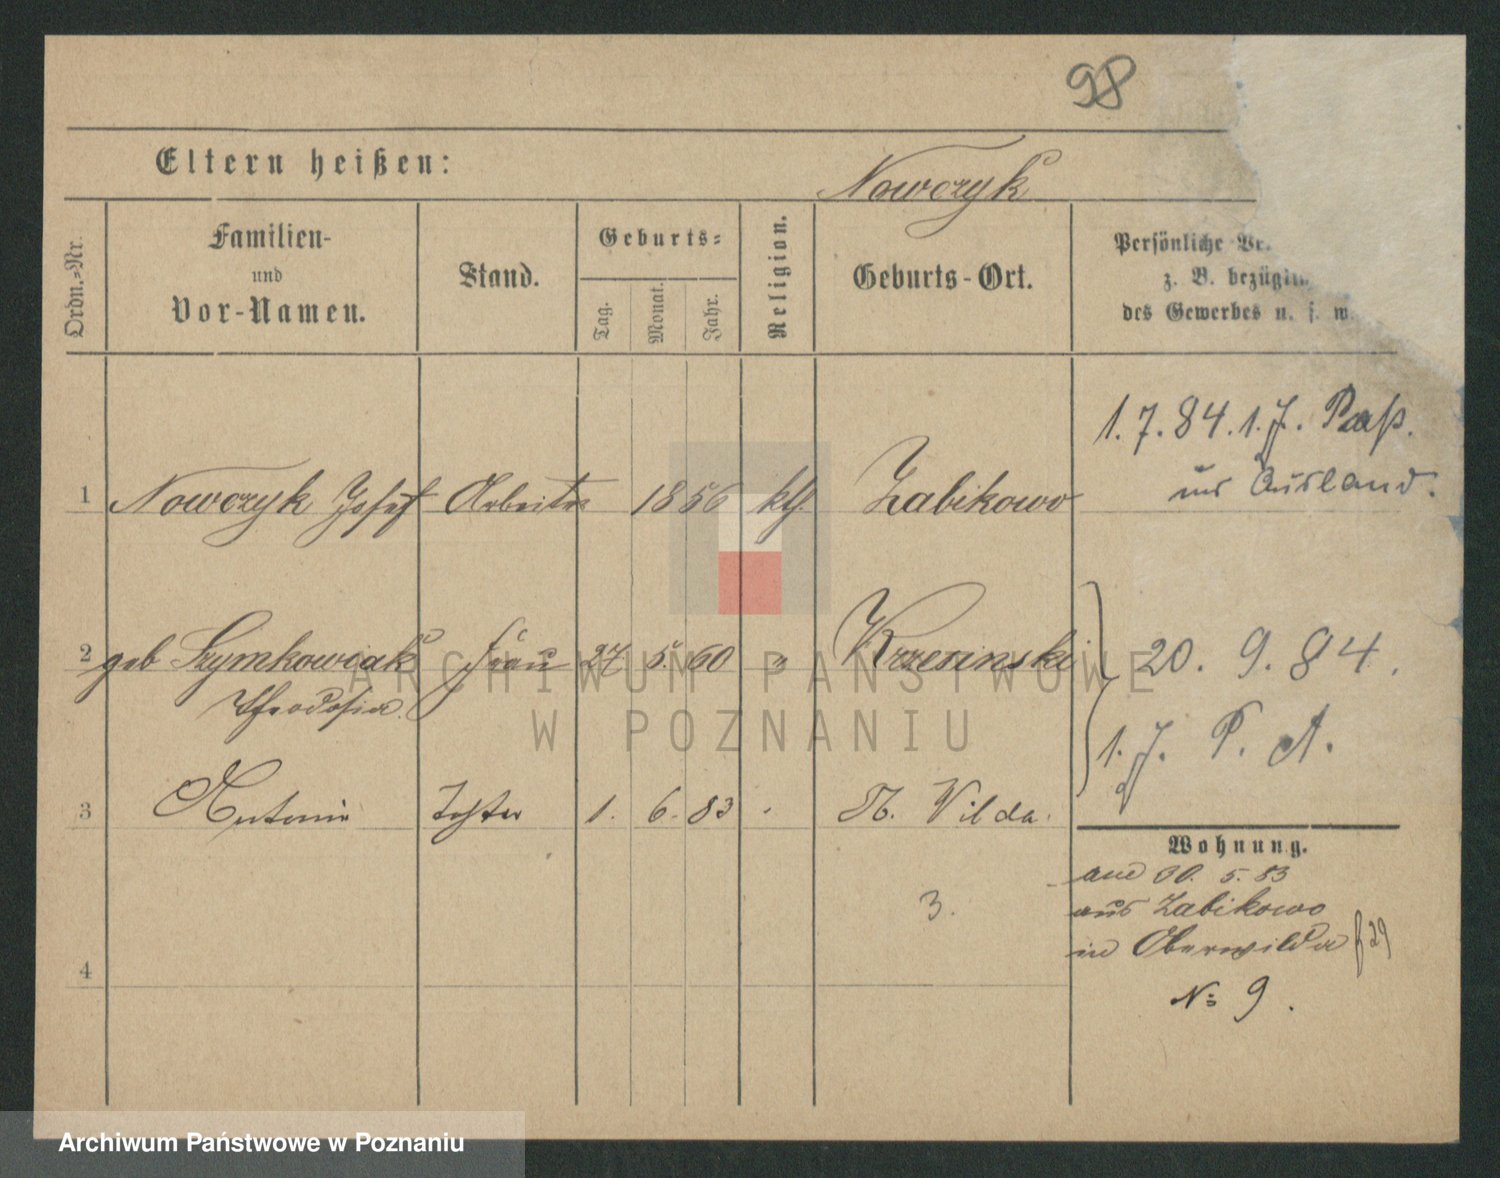 98
Eltern heißen:
Nowczyk
Ordn.-Nr.
Familien-
und
Vor-Namen.
Stand.
Geburts-
Tag.
Monat.
Jahr.
Religion.
Geburts-Ort.
Persönliche Ve
z. B. bezügli
des Gewerbes u. s. w.
1 Nowczyk Josef Arbeiter 1856 kth. Zabikowo
1. 7. 84. 1. J. Paß.
ins Ausland.
2 geb Szymkowiak Frau 27 5. 60 " Krzesinski
Theodosia.
20. 9. 84.
1. J. P. A.
3 Antonie Tochter 1. 6. 83 Ob. Wilda.
Wohnung.
30. 5. 83
aus Zabikowo
in Oberwilda f 29
No 9.
3.
4
ARCHIWUM PAŃSTWOWE
W POZNANIU
Archiwum Państwowe w Poznaniu